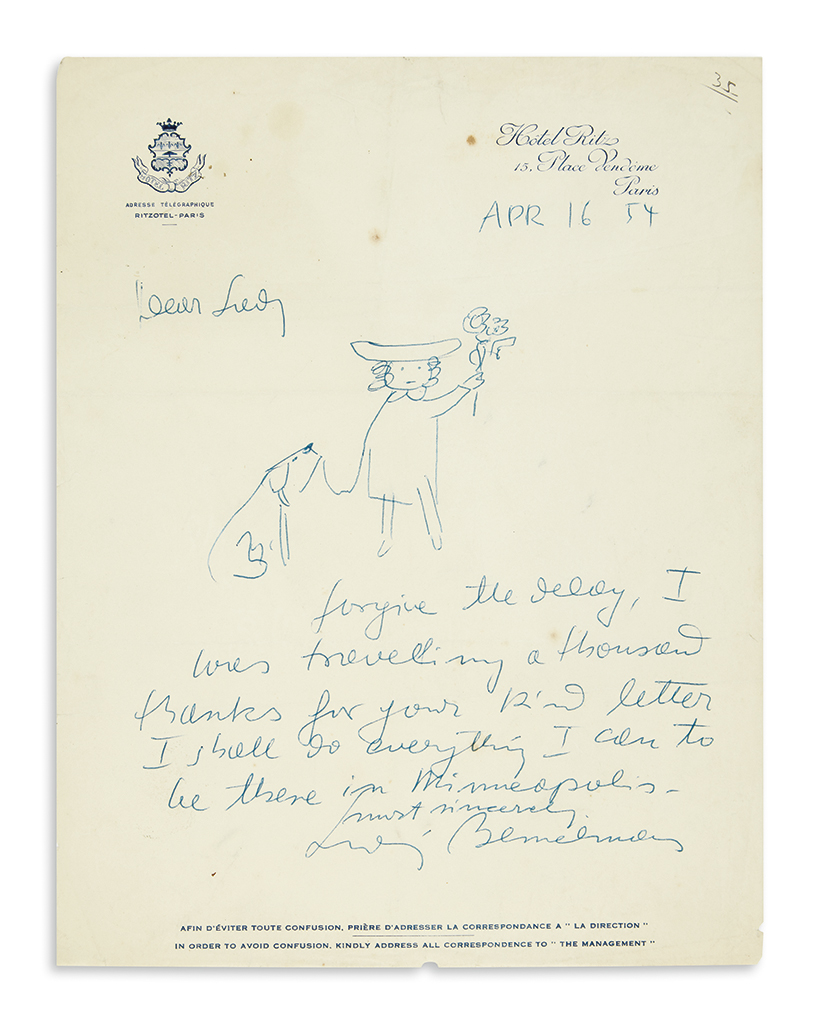 35.
HOTEL RITZ
ADRESSE TÉLÉGRAPHIQUE
RITZOTEL-PARIS
Hôtel Ritz
15, Place Vendôme
Paris
APR 16 54
Dear
forgive the delay, I
was travelling a thousand
thanks for your kind letter
I shall do everything I can to
be there in Minneapolis-
most sincerely
Bemelmans
AFIN D'ÉVITER TOUTE CONFUSION, PRIÈRE D'ADRESSER LA CORRESPONDANCE A " LA DIRECTION "
IN ORDER TO AVOID CONFUSION, KINDLY ADDRESS ALL CORRESPONDENCE TO " THE MANAGEMENT "